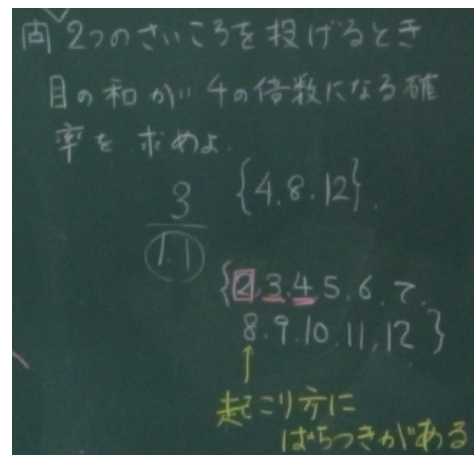 問 2つのさいころを投げるとき
目の和が4の倍数になる確
率を求めよ.
3 {4.8.12}.
11
{2,3,4,5,6,7,
8.9.10.11,12}
↑
起こり方に
ばらつきがある